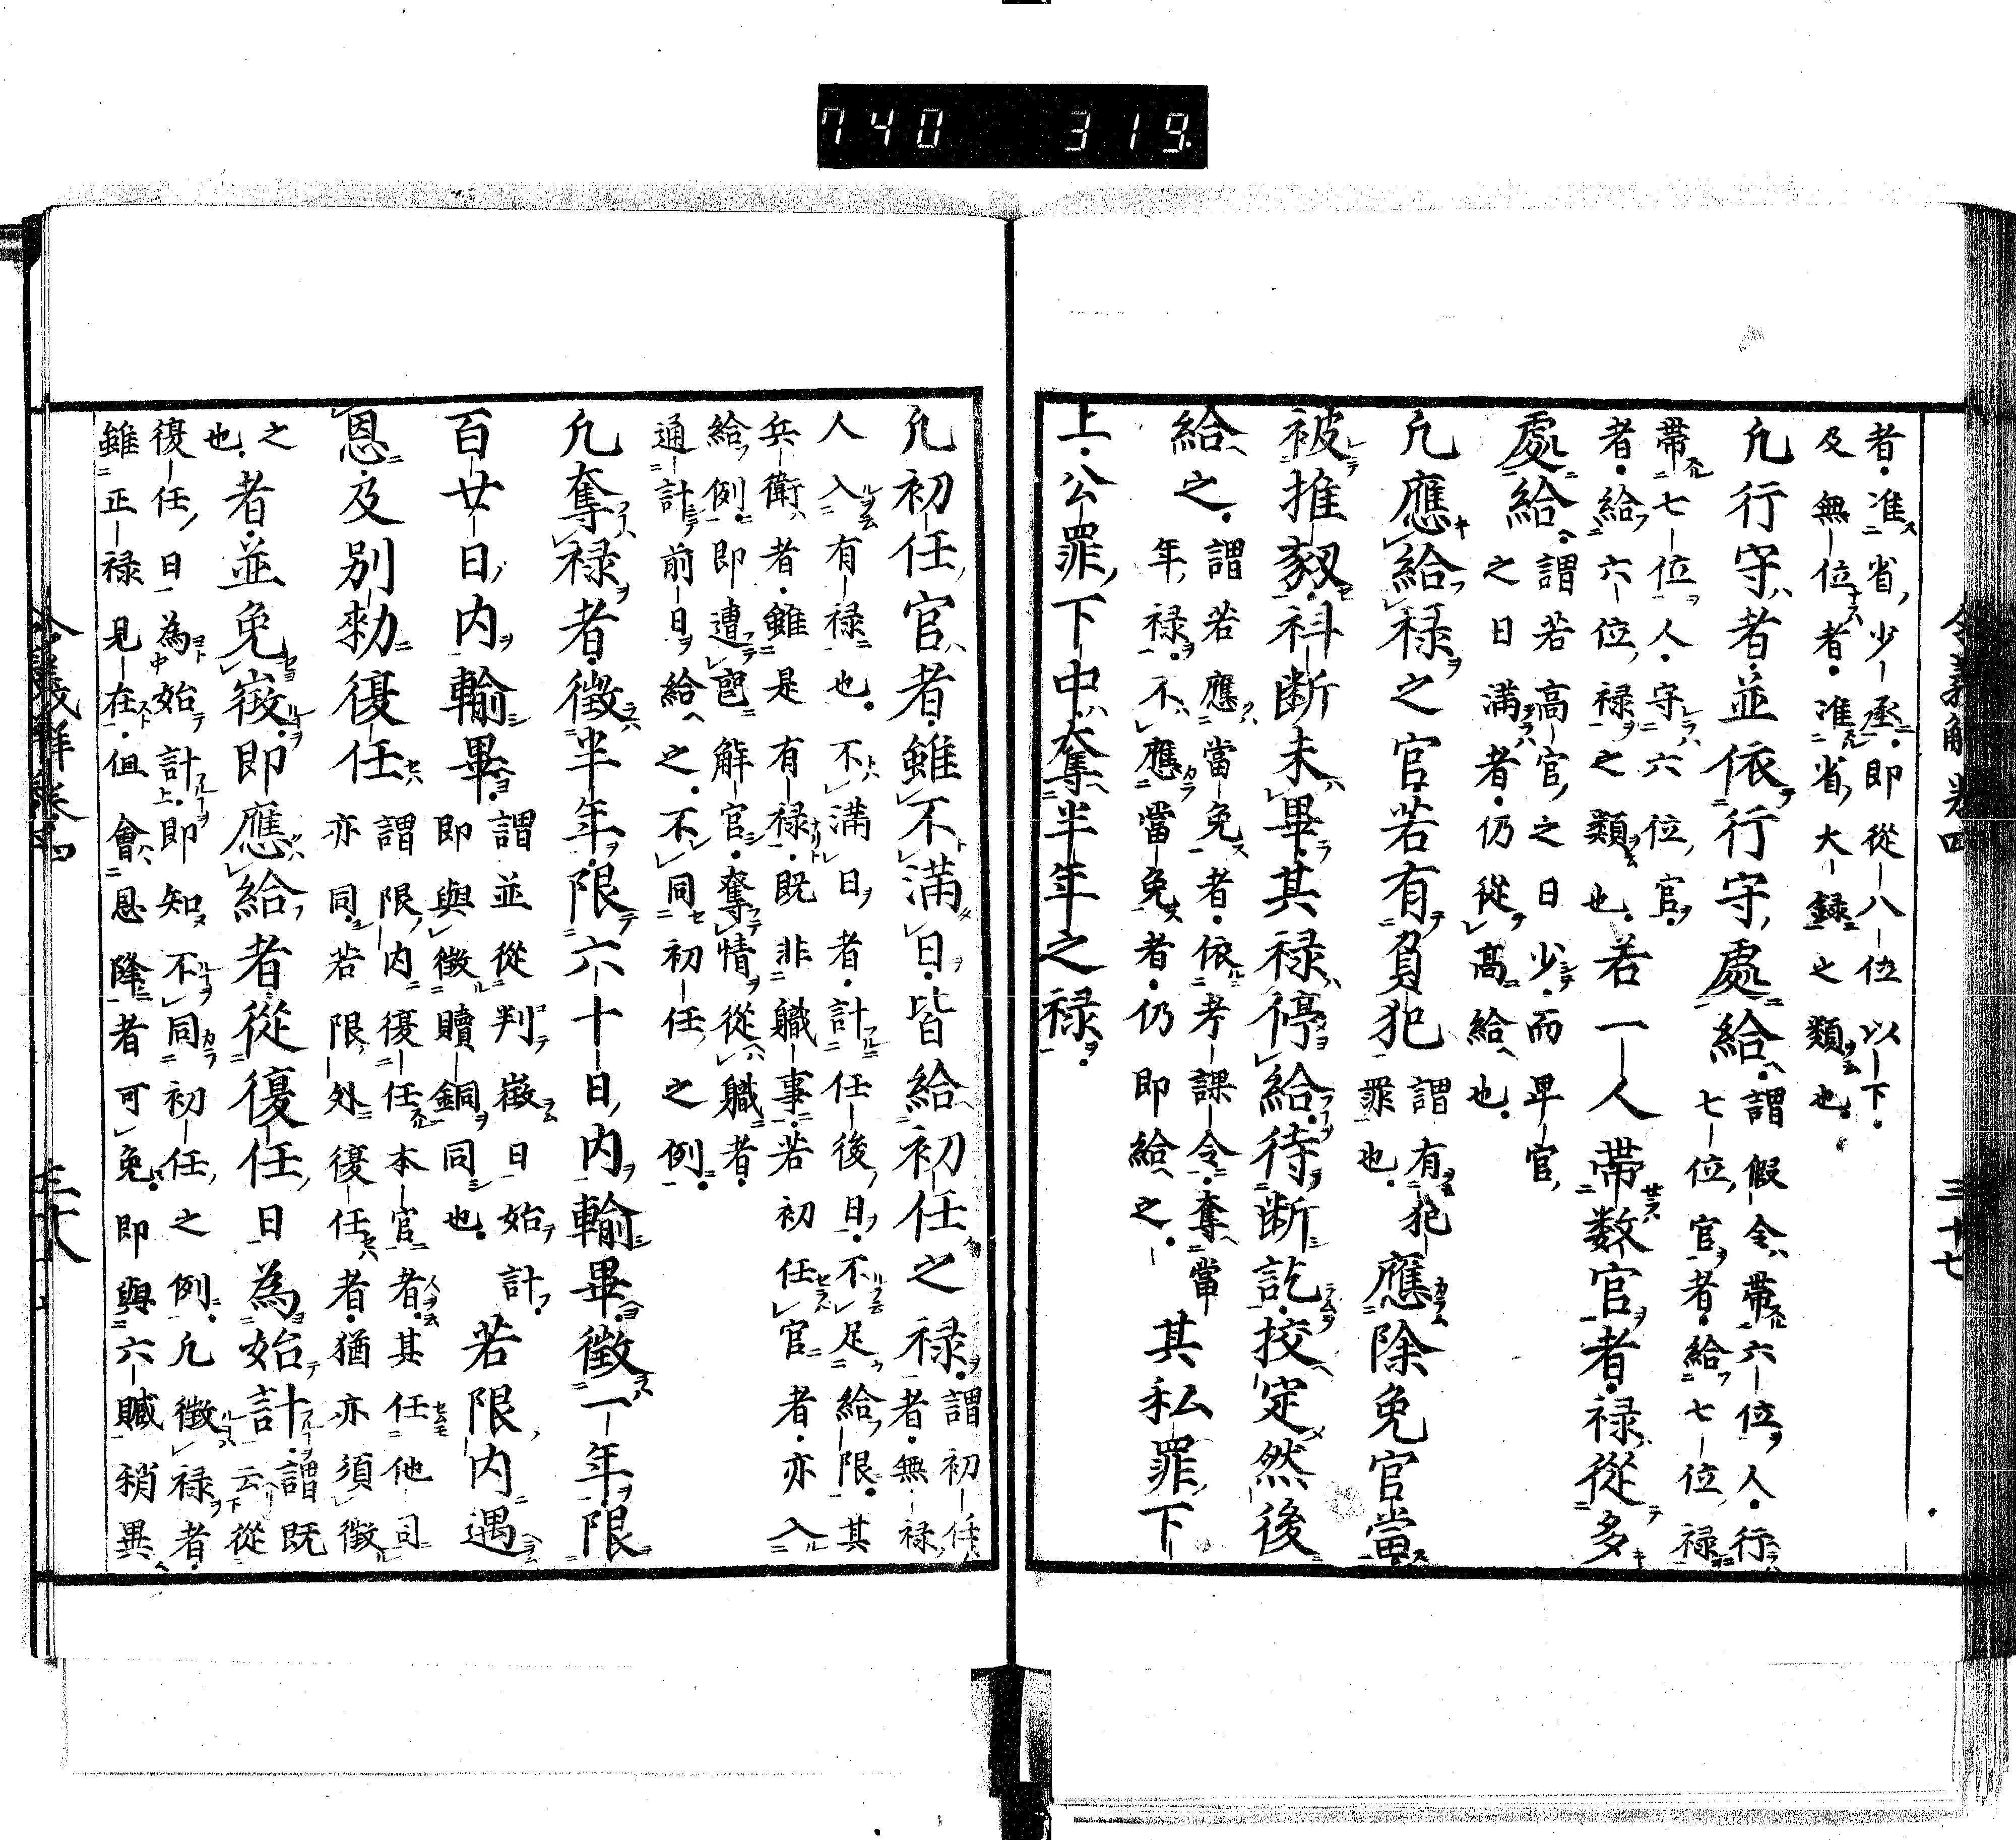 740 319
者准省少丞即從八位以下
及無位者准省大録之類也
凢行守者並依行守處給謂假令帶六位人行
七位官者給七位禄
帶七位人守六位官
者給六位禄之類也若一人帶数官者禄從多
處給謂若高官之日少而卑官
之日滿者仍從高給也
凢應給禄之官若有負犯謂有犯
罪也應除免官當
被推劾科断未畢其禄停給待断訖挍定然後
給之謂若應當免者依考課令奪當
年禄不應當免者仍即給之其私罪下
上公罪下中奪半年之禄
令義解卷四 三十七
凢初任官者雖不滿日皆給初任之禄謂初任
者無禄
人入有禄也不滿日者計任後日不足給限其
兵衛者雖是有禄既非職事若初任官者亦入
給例即遭喪解官奪情從職者
通計前日給之不同初任之例
凢奪禄者徴半年限六十日内輸畢徴一年限
百廿日内輸畢謂並從判徴日始計
即與徴贖銅同也若限内遇
恩及別勅復任謂限内復任本官者其任他司
亦同若限外復任者猶亦須徴
之
也者並免徴即應給者從復任日為始計謂既
云從
復任日為始計即知不同初任之例凢徴禄者
雖正禄見在但會恩降者可免即與六贓稍異